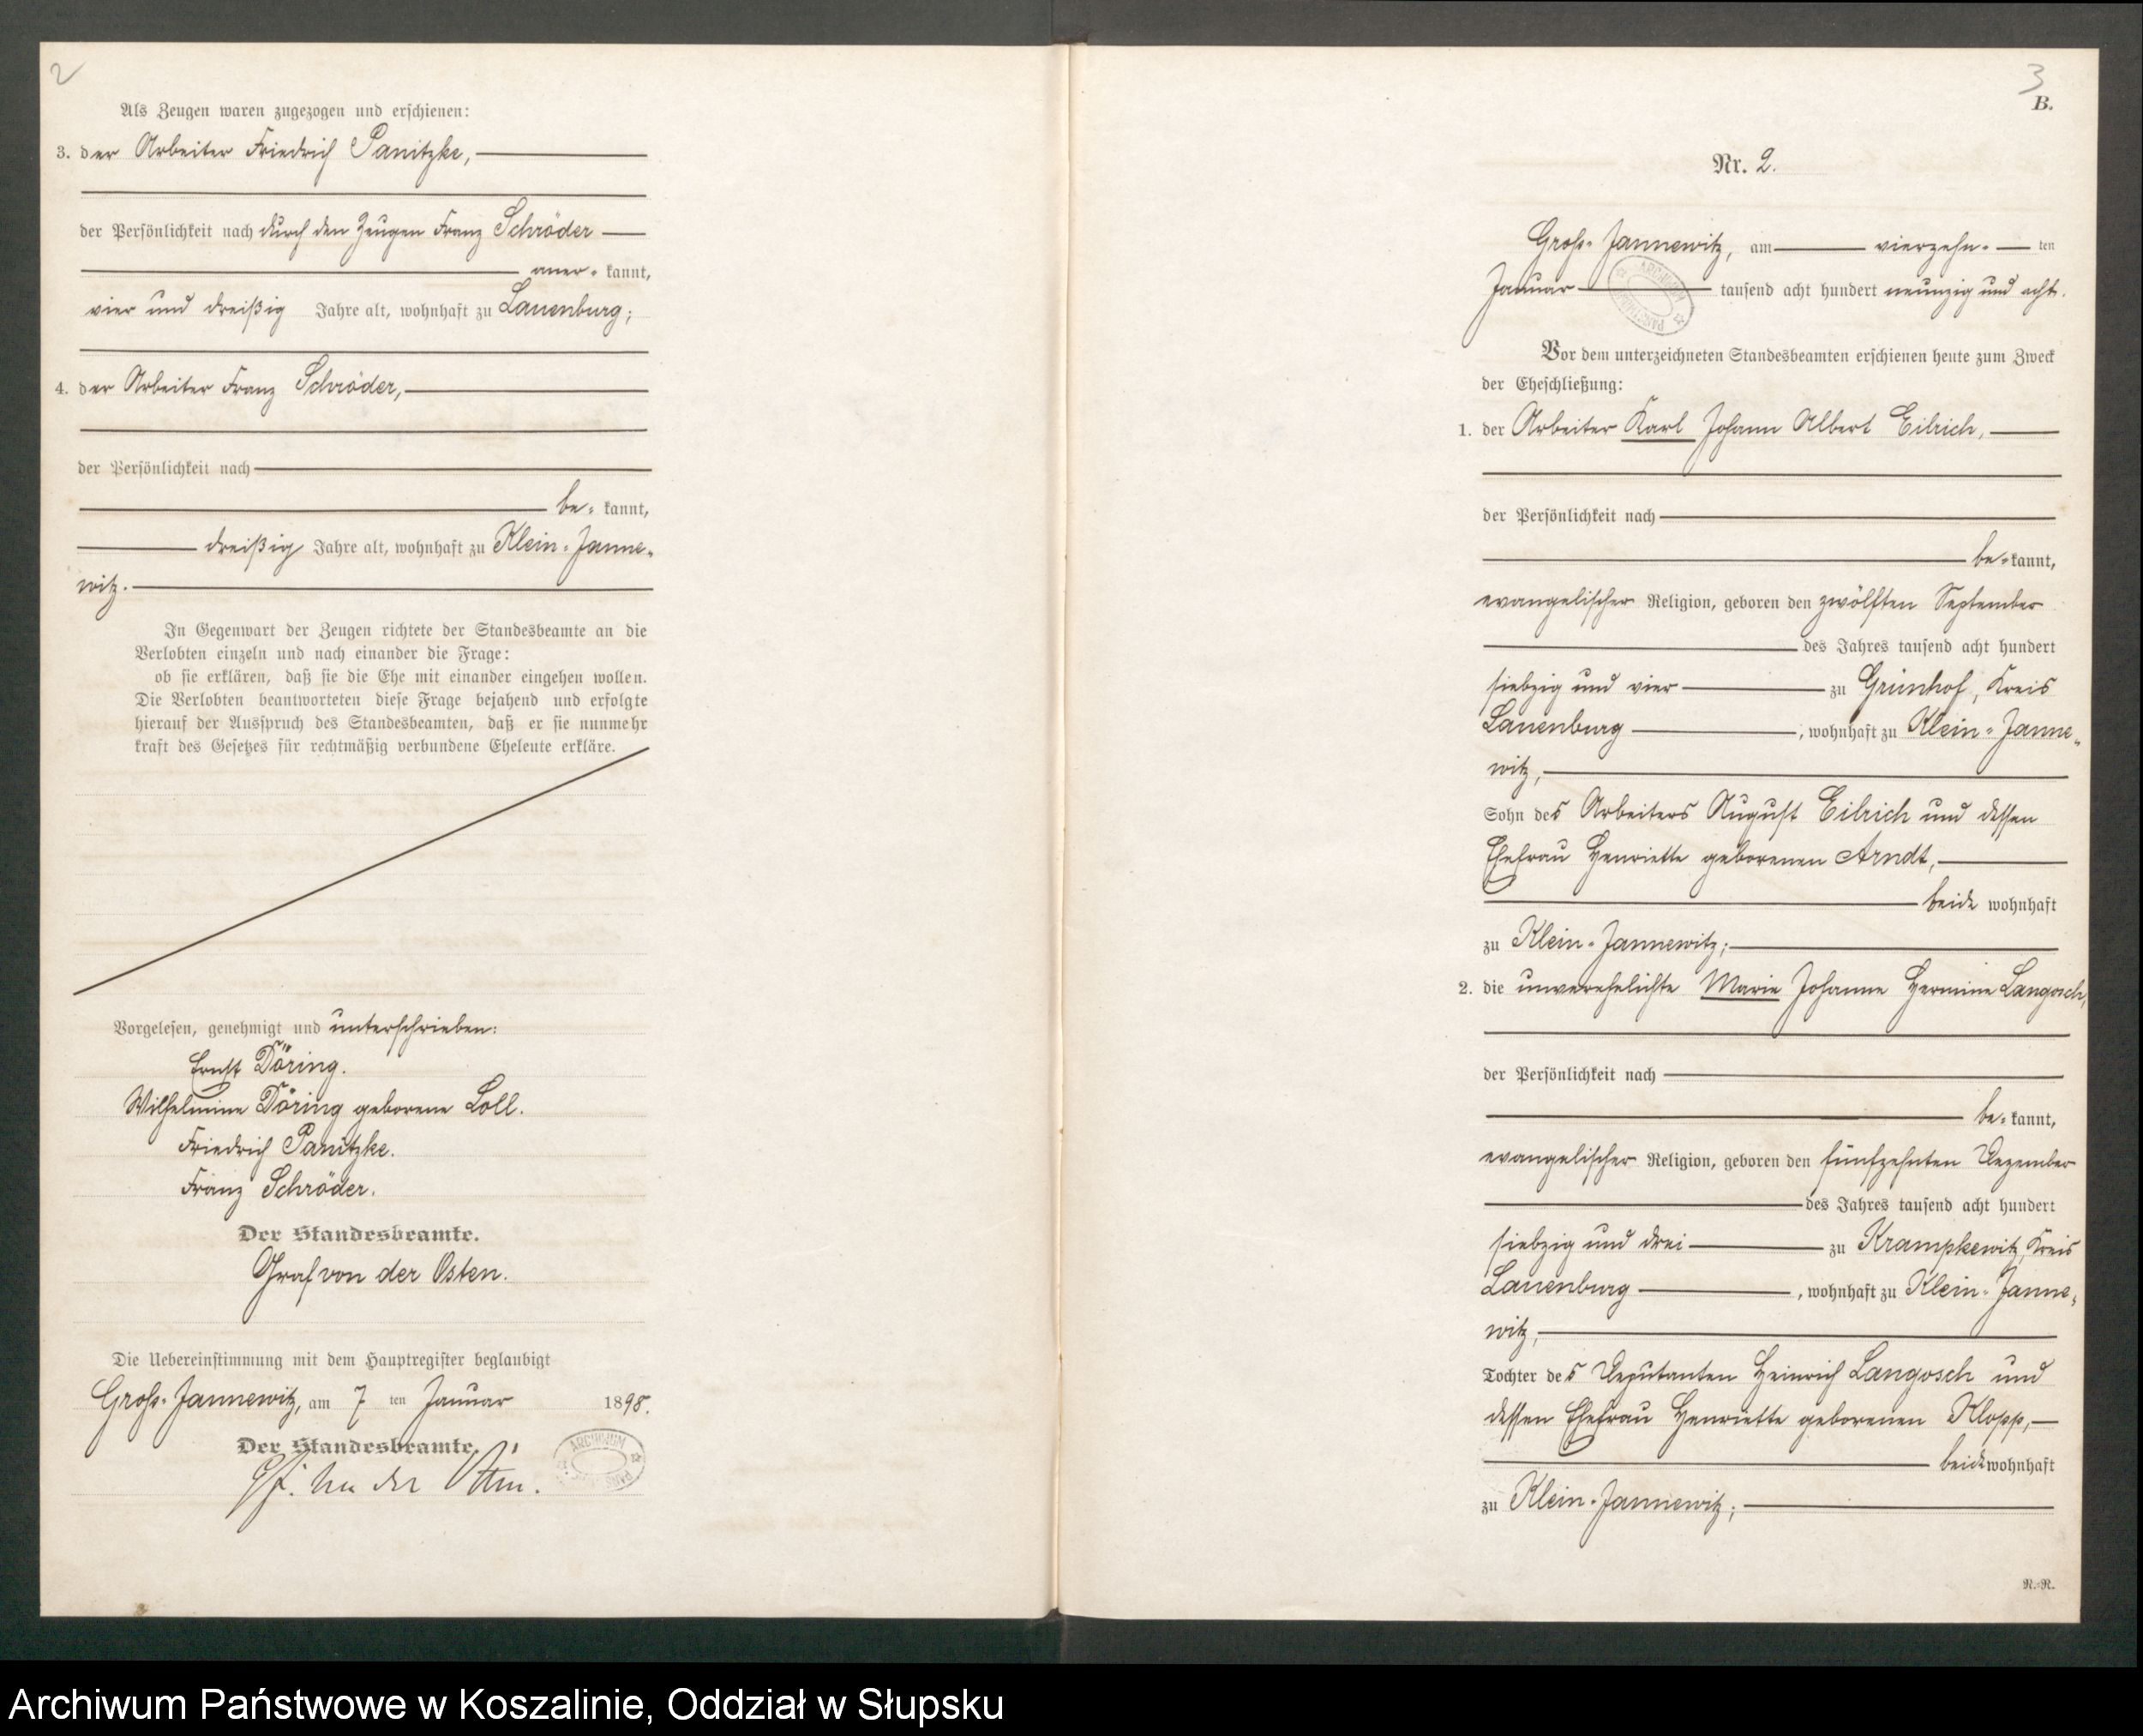 2
Als Zeugen waren zugezogen und erschienen:
3. der Arbeiter Friedrich Panitzke,
der Persönlichkeit nach durch den Zeugen Franz Schröder
aner- kannt,
vier und dreißig Jahre alt, wohnhaft zu Lauenburg;
4. der Arbeiter Franz Schröder,
der Persönlichkeit nach
be- kannt,
dreißig Jahre alt, wohnhaft zu Klein-Janne-
witz.
In Gegenwart der Zeugen richtete der Standesbeamte an die
Verlobten einzeln und nach einander die Frage:
ob sie erklären, daß sie die Ehe mit einander eingehen wollen.
Die Verlobten beantworteten diese Frage bejahend und erfolgte
hierauf der Ausspruch des Standesbeamten, daß er sie nunmehr
kraft des Gesetzes für rechtmäßig verbundene Eheleute erkläre.
Vorgelesen, genehmigt und unterschrieben:
Ernst Döring.
Wilhelmine Döring geborene Loll.
Friedrich Panitzke.
Franz Schröder.
Der Standesbeamte.
Graf von der Osten.
Die Uebereinstimmung mit dem Hauptregister beglaubigt
Groß-Jannewitz, am 7 ten Januar 1898.
Der Standesbeamte.
Gf. von der Osten.
ARCHIWUM
3
B.
Nr. 2.
Groß-Jannewitz, am vierzehn- ten
Januar tausend acht hundert neunzig und acht.
ARCHIWUM
Vor dem unterzeichneten Standesbeamten erschienen heute zum Zweck
der Eheschließung:
1. der Arbeiter Karl Johann Albert Eilrich,
der Persönlichkeit nach
be- kannt,
evangelischer Religion, geboren den zwölften September
des Jahres tausend acht hundert
siebzig und vier zu Grünhof, Kreis
Lauenburg , wohnhaft zu Klein-Janne-
witz,
Sohn des Arbeiters August Eilrich und dessen
Ehefrau Henriette geborenen Arndt,
beide wohnhaft
zu Klein-Jannewitz;
2. die unverehelichte Marie Johanne Hermine Langosch,
der Persönlichkeit nach
be- kannt,
evangelischer Religion, geboren den fünfzehnten Dezember
des Jahres tausend acht hundert
siebzig und drei zu Krampkewitz, Kreis
Lauenburg , wohnhaft zu Klein-Janne-
witz,
Tochter des Deputanten Heinrich Langosch und
dessen Ehefrau Henriette geborenen Klopp,
beide wohnhaft
zu Klein-Jannewitz;
N.-N.
Archiwum Państwowe w Koszalinie, Oddział w Słupsku